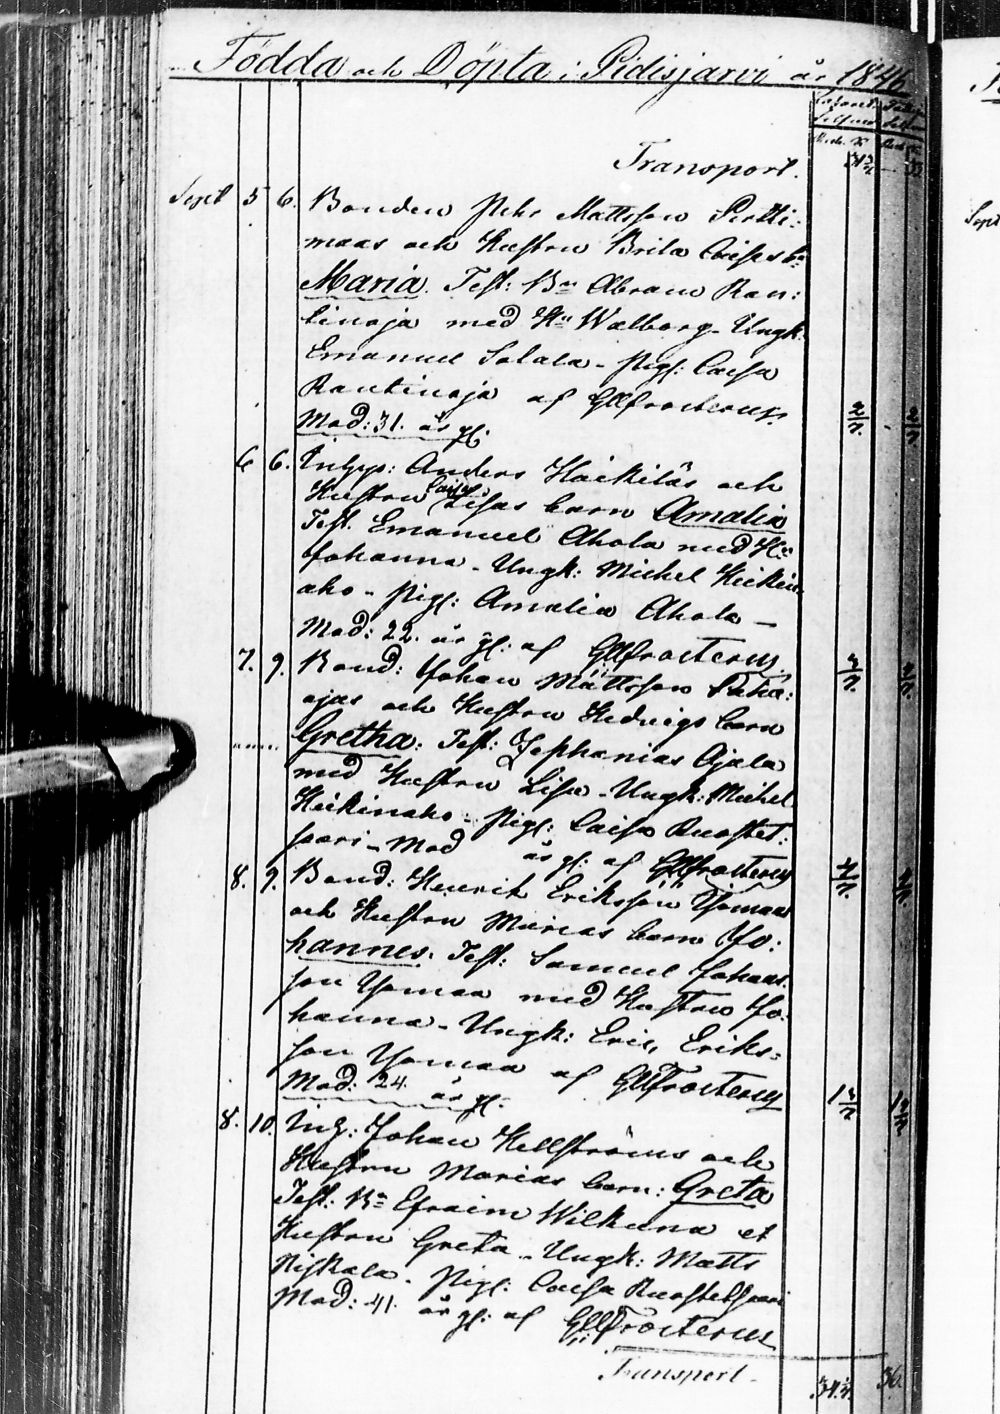 Födda och Döpta i Pidisjärvi år 1846
Transport.
Sept 5 6. Bonden Pehr Mattsson Pertti-
maas och Hustru Brita Caisas bn
Maria. Test: Bn Abram Ran:
tinoja med Hu Walborg - Ungk:
Emanuel Solala - Pig: Caisa
Rautinoja af GElfrosterus
Mod: 31. år gl.
6 6. Inhys: Anders Häikiläs och
Hustru Caisa
Lisas barn Amalia
Test. Emanuel Ahola med Hu
Johanna - Ungk: Michel Heikin-
aho - Pig: Amalia Ahola -
Mod: 22. år gl: af GElfrosterus.
7. 9. Bond: Johan Mattsson
ojas och Hustru Hedvigs barn
Gretha: Test: Zephanias Ajala
med Hustru Lisa - Ungk: Michel
Heikinaho - Pig: Caisa Ruostet:
saari - Mod år gl: af GElfrosterus
8. 9. Bond: Henrik Eriksson Ypmaa
och Hustru Marias barn Jo:
hannes. Test: Samuel Johans-
son Ypmaa med Hustru Jo:
hanna - Ungk: Eric Eriks:
son Ypmaa af GElfrosterus
Mod: 24. år gl.
8. 10. Inh: Johan Hellströms och
Hustru Marias barn: Greta
Test: Bn Efraim Wilkuna et
Hustru Greta - Ungk: Matts
Niskala - Pig: Caisa Ruostetsaari
Mod: 41. år gl: af GElfrosterus
Transport -